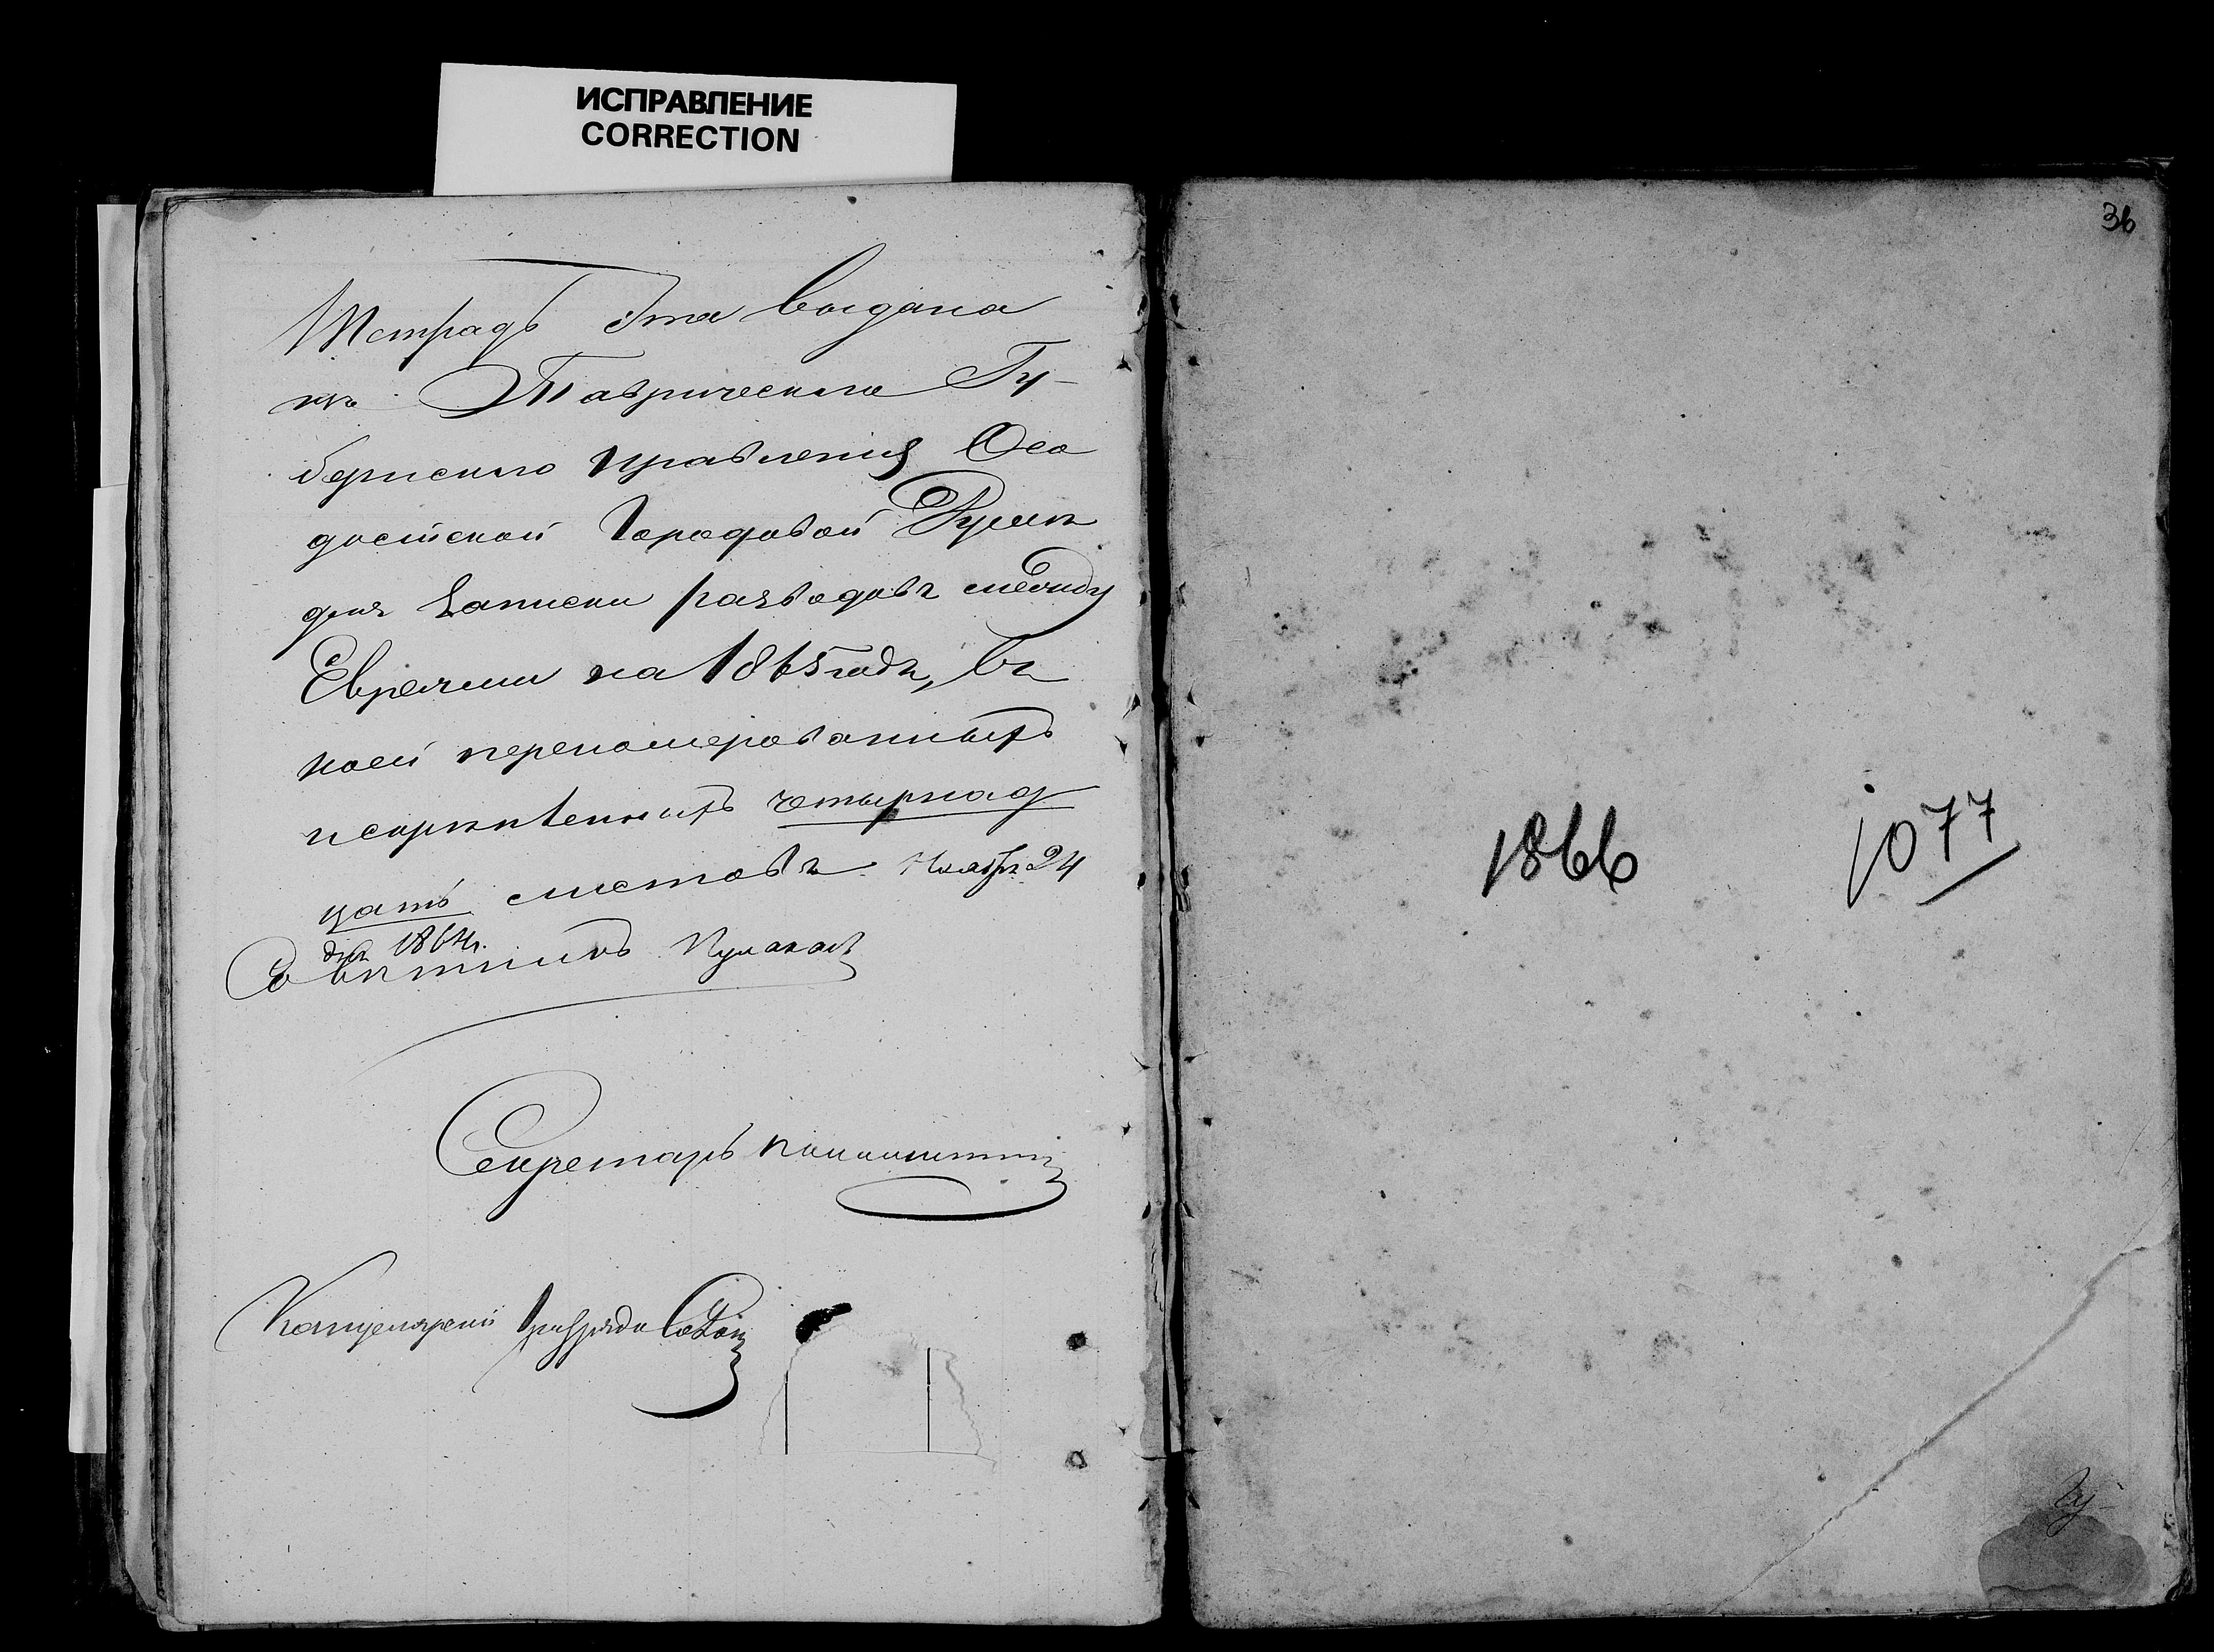 ИСПРАВЛЕНИЕ
CORRECTION
Тетрадь эта выдана
изъ Таврическаго Гу-
бернскаго правления Ѳео
досійской Городовой Думѣ
для записки разводовъ между
Евреями на 1865 годъ, въ
коей перенумерованныхъ
и скрѣпленныхъ четырнад
цать листовъ Ноября 24
дня 1864 г.
Совѣтникъ
Секретарь
Канцелярскій
36
1866
1077